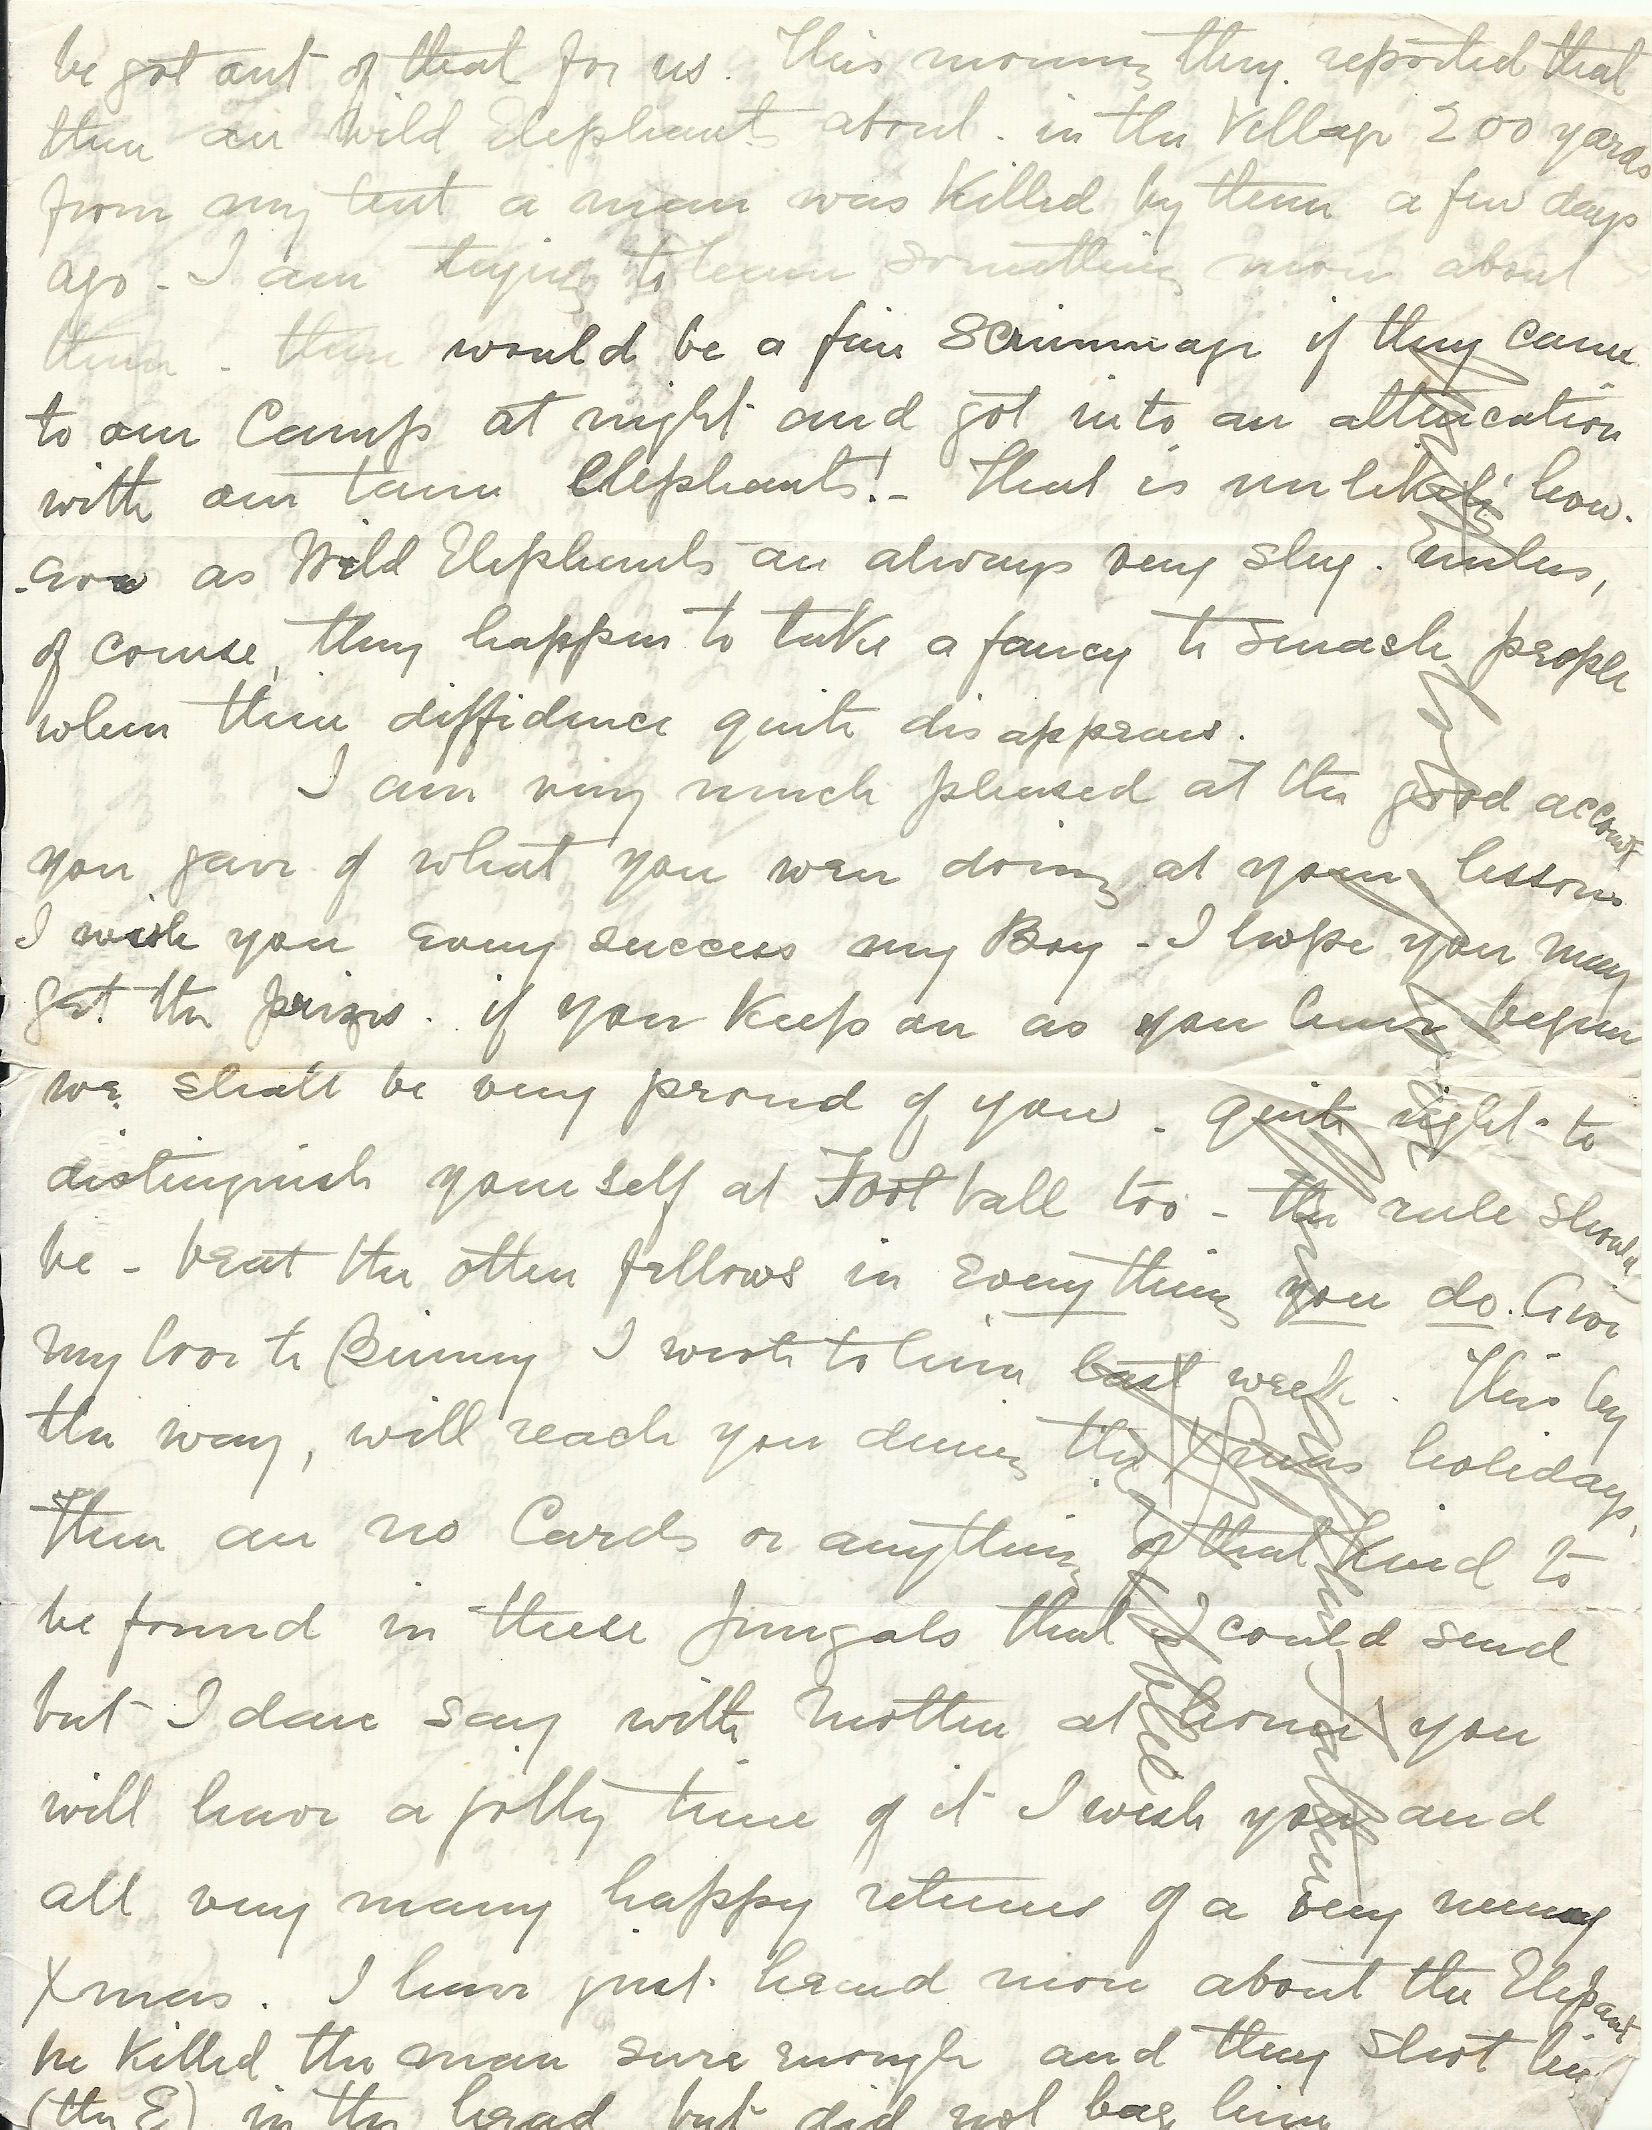 be got out of that for us. This morning they reported that
there are Wild Elephants about. in the Village 200 yards
from my tent a man was Killed by them a few days
ago - I am trying to learn something more about
them - there would be a fine Scrimmage if they came
to our Camp at night and got into an altercation
with our tame Elephants! - That is unlikely how-
-ever as Wild Elephants are always very shy. Unless,
of course, they happen to take a fancy to smash people
when their diffidence quite disappears.
I am very much pleased at the good account
you gave of what you were doing at your lessons
I wish you every success my Boy - I hope you may
get the prizes. if you Keep on as you have begun
we shall be very proud of you. quite right to
distinguish yourself at Foot ball too - the rule should
be - beat the other fellows in everything you do. Give
my love to Binny I wrote to him last week. This by
the way, will reach you during the Xmas holidays,
There are no Cards or anything of that Kind to
be found in these Jungals that I could send
but I dare say with Mother at home you
will have a jolly time of it I wish you and
all very many happy returns of a very merry
Xmas. I have just heard more about the Elepant
he Killed the man sure enough and they shot him
(the E) in the head but did not bag him